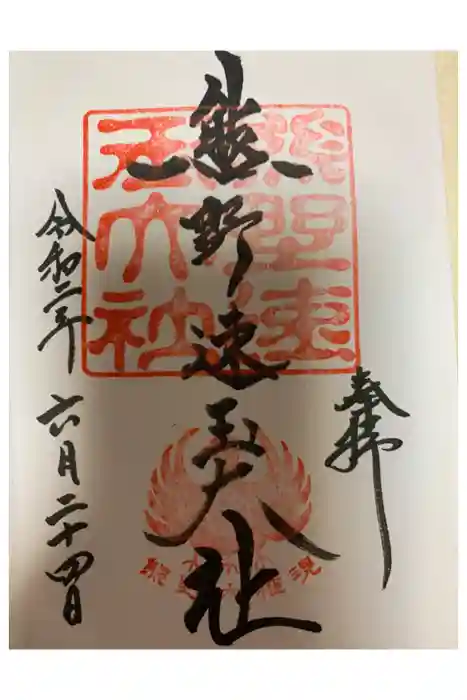 奉拝
熊野速玉大社
熊野速玉大社
令和二年 六月二十四日